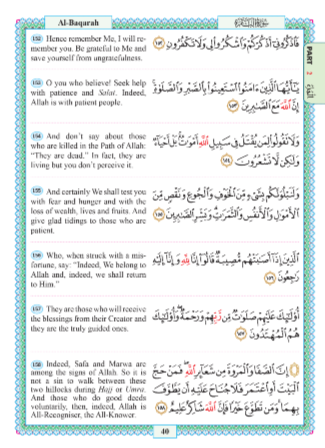 Al-Baqarah
سورة البقرة
PART 2
152 Hence remember Me, I will re-
member you. Be grateful to Me and
save yourself from ungratefulness.
فَاذْكُرُونِي أَذْكُرْكُمْ وَاشْكُرُوا لِي وَلَا تَكْفُرُونِ ١٥٢
153 O you who believe! Seek help
with patience and Salat. Indeed,
Allah is with patient people.
يَا أَيُّهَا الَّذِينَ ءَامَنُوا اسْتَعِينُوا بِالصَّبْرِ وَالصَّلَوٰةِ
إِنَّ اللَّهَ مَعَ الصَّٰبِرِينَ ١٥٣
154 And don't say about those
who are killed in the Path of Allah:
"They are dead." In fact, they are
living but you don't perceive it.
وَلَا تَقُولُوا لِمَن يُقْتَلُ فِي سَبِيلِ اللَّهِ أَمْوَٰتٌ بَلْ أَحْيَاءٌ
وَلَٰكِن لَّا تَشْعُرُونَ ١٥٤
155 And certainly We shall test you
with fear and hunger and with the
loss of wealth, lives and fruits. And
give glad tidings to those who are
patient.
وَلَنَبْلُوَنَّكُم بِشَيْءٍ مِّنَ الْخَوْفِ وَالْجُوعِ وَنَقْصٍ مِّنَ
الْأَمْوَٰلِ وَالْأَنفُسِ وَالثَّمَرَٰتِ وَبَشِّرِ الصَّٰبِرِينَ ١٥٥
156 Who, when struck with a mis-
fortune, say: "Indeed, We belong to
Allah and, indeed, we shall return
to Him."
الَّذِينَ إِذَا أَصَٰبَتْهُم مُّصِيبَةٌ قَالُوا إِنَّا لِلَّهِ وَإِنَّا إِلَيْهِ
رَٰجِعُونَ ١٥٦
157 They are those who will receive
the blessings from their Creator and
they are the truly guided ones.
أُولَٰئِكَ عَلَيْهِمْ صَلَوَٰتٌ مِّن رَّبِّهِمْ وَرَحْمَةٌ وَأُولَٰئِكَ
هُمُ الْمُهْتَدُونَ ١٥٧
158 Indeed, Safa and Marwa are
among the signs of Allah. So it is
not a sin to walk between these
two hillocks during Hajj or Umra.
And those who do good deeds
voluntarily, then, indeed, Allah is
All-Recogniser, the All-Knower.
إِنَّ الصَّفَا وَالْمَرْوَةَ مِن شَعَائِرِ اللَّهِ فَمَنْ حَجَّ
الْبَيْتَ أَوِ اعْتَمَرَ فَلَا جُنَاحَ عَلَيْهِ أَن يَطَّوَّفَ
بِهِمَا وَمَن تَطَوَّعَ خَيْرًا فَإِنَّ اللَّهَ شَاكِرٌ عَلِيمٌ ١٥٨
40